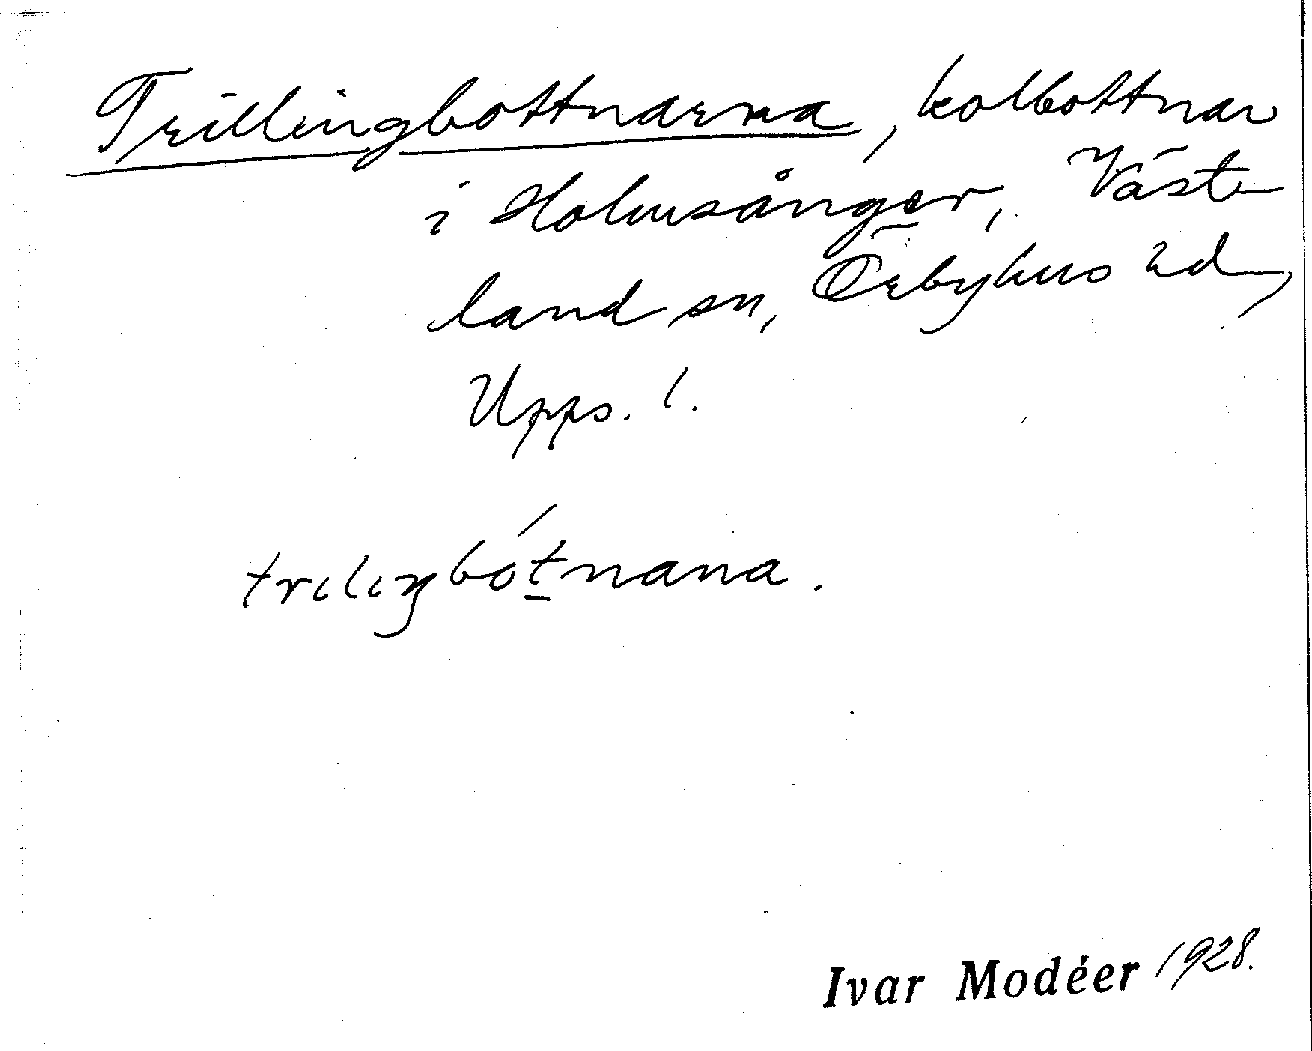 Trillingbottnarna, kolbottnar
i Holmsånger, Väst-
land sn, Örbyhus hd,
Upps. l.
triliŋbót̲nana.
Ivar Modéer 1928.